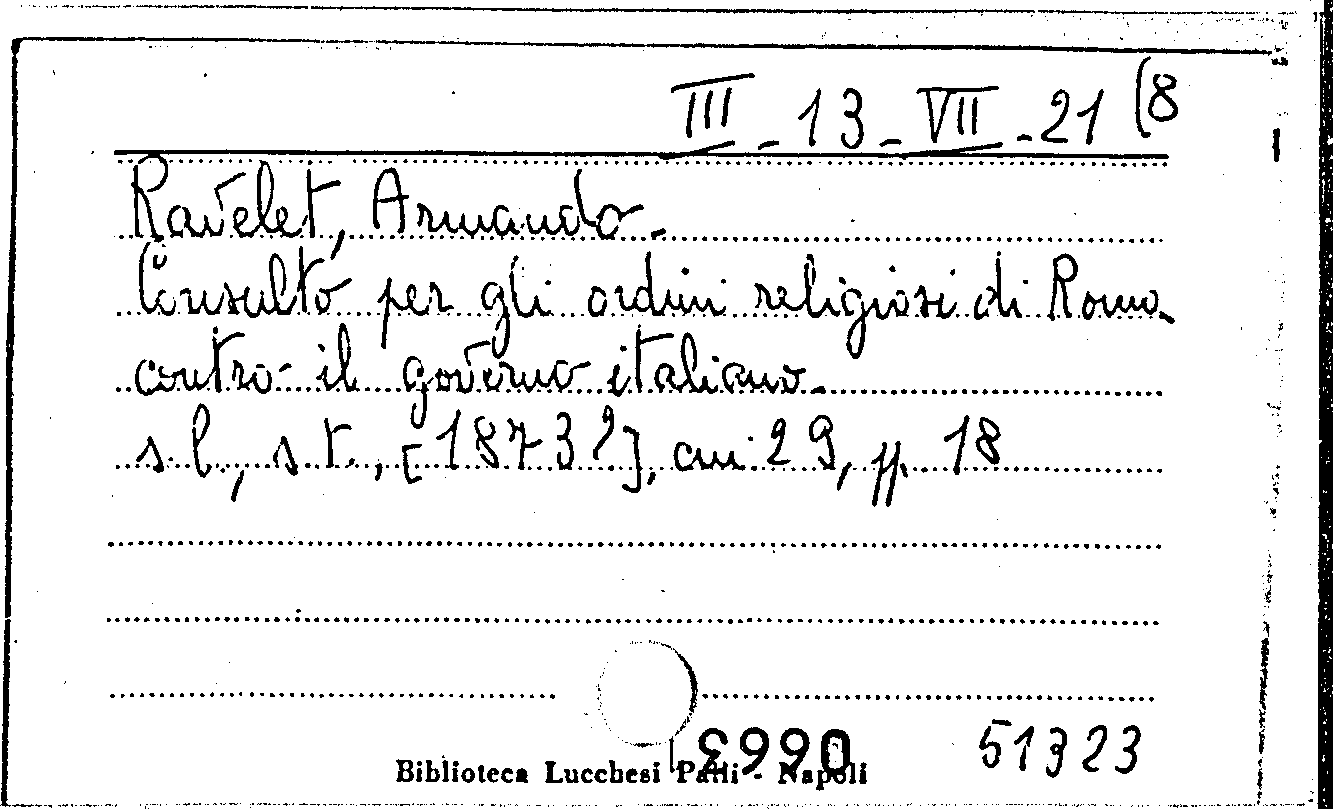 III - 13 - VII - 21 (8
Ravelet, Armando.
Consulto per gli ordini religiosi di Roma
contro il governo italiano.
s. l., s. t., [1873?], cm. 29, pp. 18
51323
Biblioteca Lucchesi Palli - Napoli